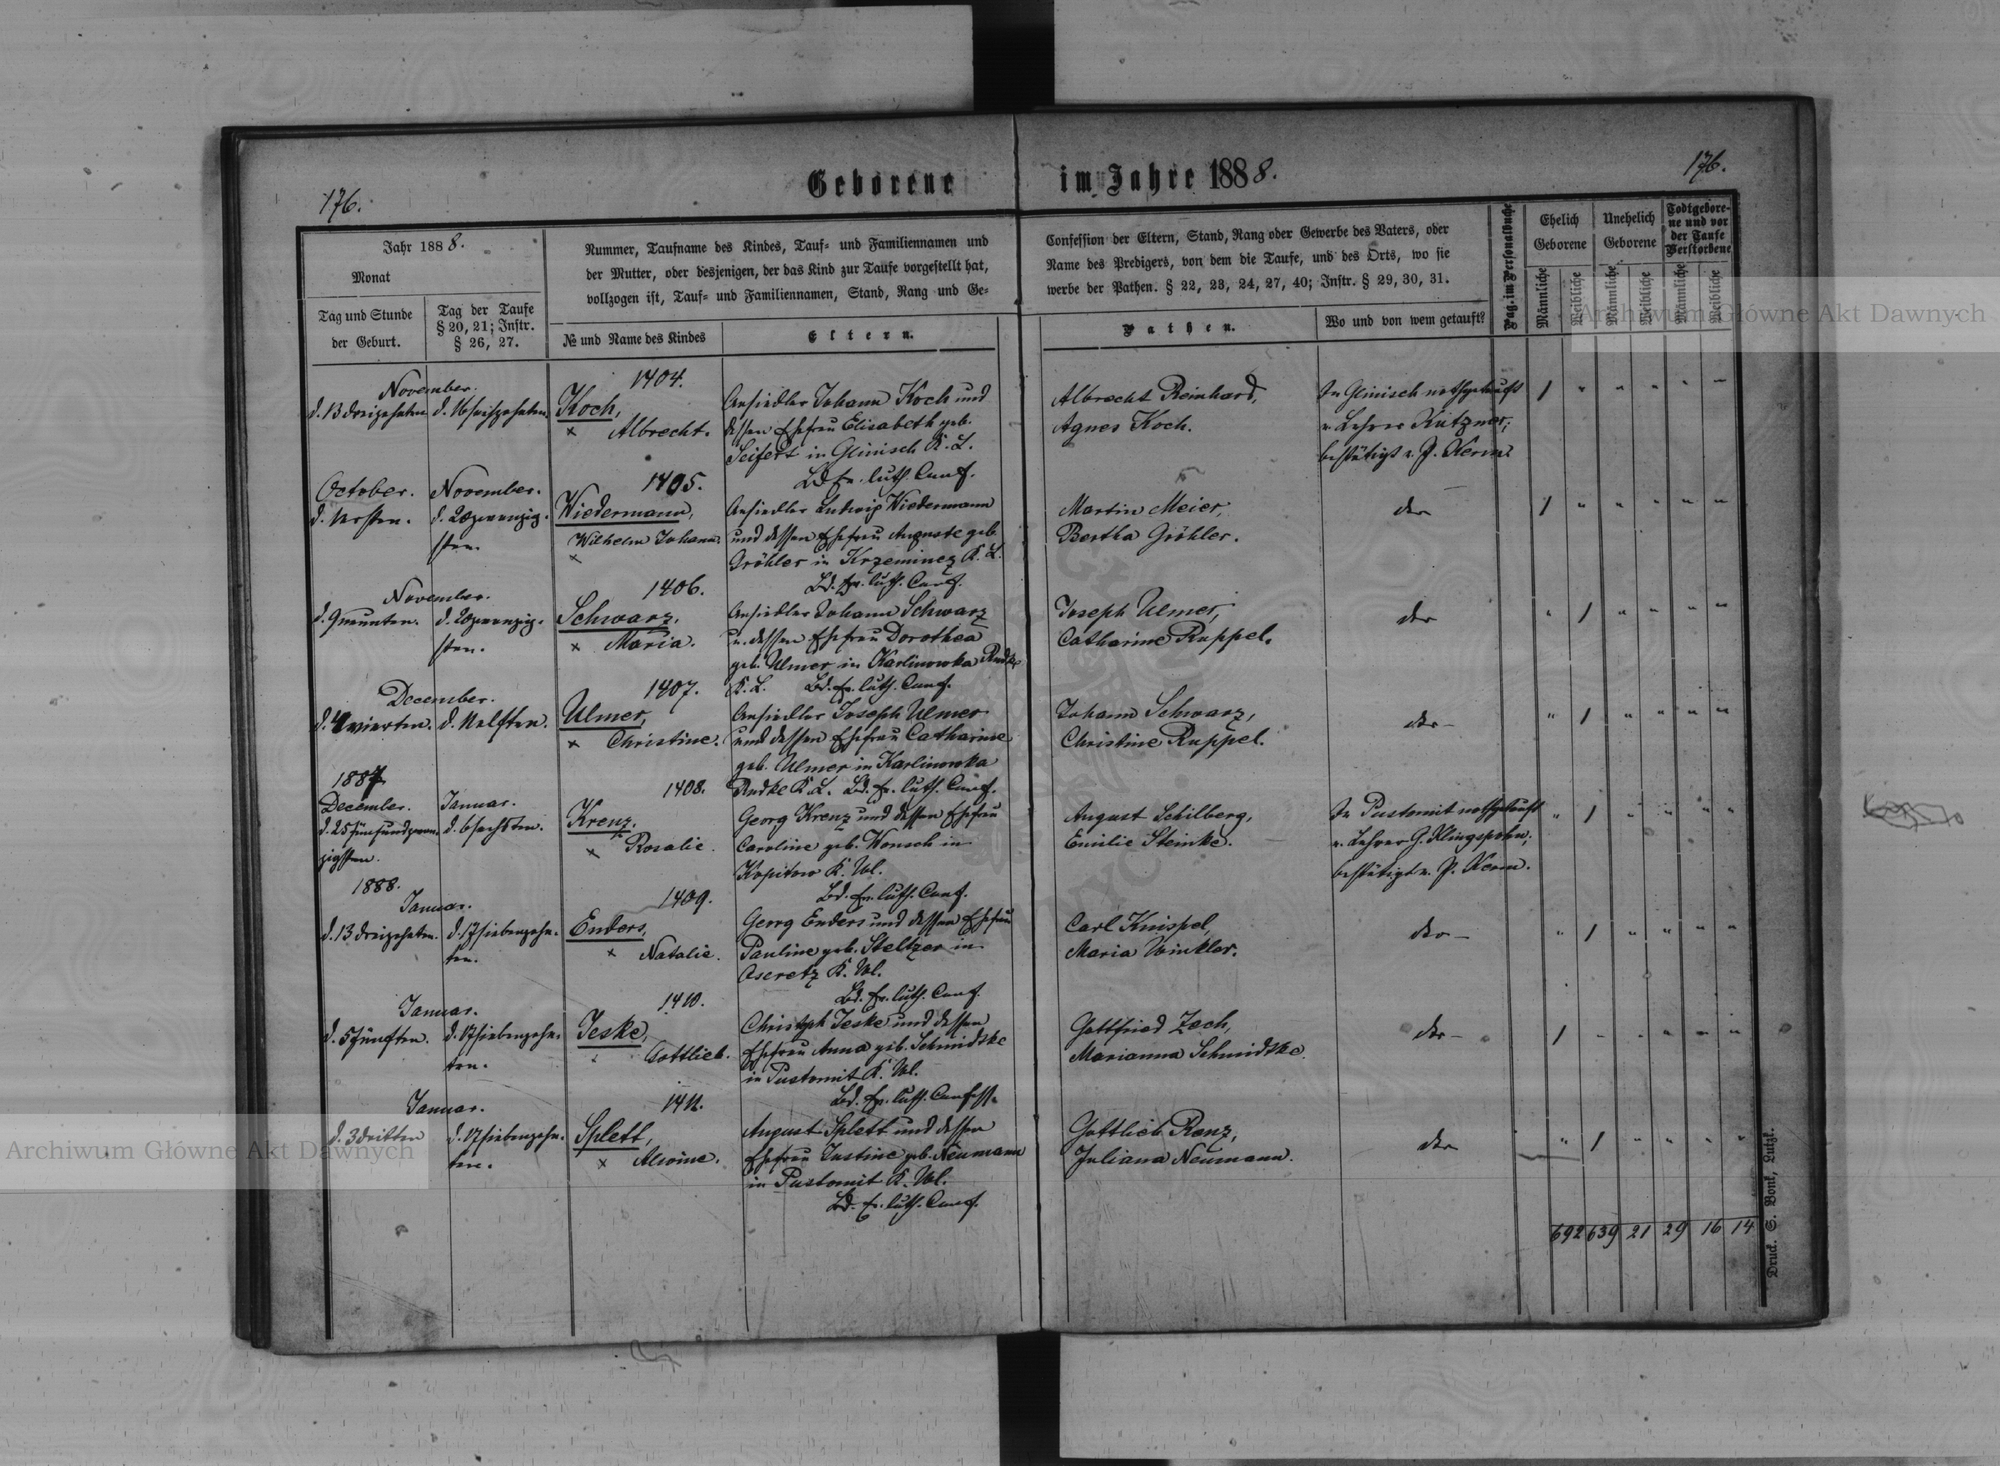 176.
Geborene im Jahre 1888.
176.
Jahr 1888.
Monat
Tag und Stunde
der Geburt.
Tag der Taufe
§ 20, 21; Instr.
§ 26, 27.
Nummer, Taufname des Kindes, Tauf- und Familiennamen und
der Mutter, oder desjenigen, der das Kind zur Taufe vorgestellt hat,
vollzogen ist, Tauf- und Familiennamen, Stand, Rang und Ge-
№ und Name des Kindes
Eltern.
Confession der Eltern, Stand, Rang oder Gewerbe des Vaters, oder
Name des Predigers, von dem die Taufe, und des Orts, wo sie
werbe der Pathen. § 22, 23, 24, 27, 40; Instr. § 29, 30, 31.
Pathen.
Wo und von wem getauft?
Pag. im Personalbuche
Ehelich
Geborene
Unehelich
Geborene
Todtgebore-
ne und vor
der Taufe
Verstorbene
Männliche
Weibliche
Männliche
Weibliche
Männliche
Weibliche
November.
d. 13 dreizehnten
d. 16 sechszehnten.
1404.
Koch,
× Albrecht.
Ansiedler Johann Koch und
dessen Ehefrau Elisabeth geb.
Seifert in Glinisch K. L.
Bd. Ev. luth. Conf.
Albrecht Reinhard,
Agnes Koch.
In Glinisch nothgetauft
v. Lehrer Kutzner;
bestätigt v. P. Kerm
1 " " " " "
October.
November.
d. 1 ersten.
d. 20 zwanzig-
sten.
1405.
Wiedermann,
Wilhelm Johann.
×
Ansiedler Ludwig Wiedermann
und dessen Ehefrau Auguste geb.
Gröhler in Krzeminez K. L.
Bd. Ev. luth. Conf.
Martin Meier,
Bertha Gröhler.
der
1 " " " " "
November.
d. 9 neunten.
d. 20 zwanzig-
sten.
1406.
Schwarz,
× Maria.
Ansiedler Johann Schwarz
u. dessen Ehefrau Dorothea
geb. Ulmer in Karlinowka Rudke
K. L. Bd. Ev. luth. Conf.
Joseph Ulmer,
Catharine Ruppel.
der
" 1 " " " "
December.
d. 4 vierten.
d. 11 elften.
1407.
Ulmer,
× Christine.
Ansiedler Joseph Ulmer
und dessen Ehefrau Catharine
geb. Ulmer in Karlinowka
Rudke K. L. Bd. Ev. luth. Conf.
Johann Schwarz,
Christine Ruppel.
der
" 1 " " " "
1887
December.
Januar.
d. 25 fünfundzwan-
zigsten.
d. 6 sechsten.
1408.
Krenz,
× Rosalie.
Georg Krenz und dessen Ehefrau
Caroline geb. Wonsch in
Kopitow K. Wl.
Bd. Ev. luth. Conf.
August Schilberg,
Emilie Steinke.
In Pustomit nothgetauft
v. Lehrer G. Klingspohn;
bestätigt v. P. Kerm.
" 1 " " " "
1888.
Januar.
d. 13 dreizehnten.
d. 17 siebenzehn-
ten.
1409.
Enders,
× Natalie.
Georg Enders und dessen Ehefrau
Pauline geb. Steltzer in
Oseretz K. Wl.
Bd. Ev. luth. Conf.
Carl Knispel,
Maria Winkler.
der
" 1 " " " "
Januar.
d. 5 fünften.
d. 17 siebenzehn-
ten.
1410.
Jeske,
Gottlieb.
Christoph Jeske und dessen
Ehefrau Anna geb. Schmidtke
in Pustomit K. Wl.
Bd. Ev. luth. Confess.
Gottfried Zech,
Marianna Schmidtke.
der
1 " " " " "
Januar.
d. 3 dritten
d. 17 siebenzehn-
ten.
1411.
Splett,
× Alwine.
August Splett und dessen
Ehefrau Justine geb. Neumann
in Pustomit K. Wl.
Bd. Ev. luth. Conf.
Gottlieb Renz,
Juliana Neumann.
der
" 1 " " " "
692 639 21 29 16 14
Druck. S. Bonk, Lutzk.
Archiwum Główne Akt Dawnych
Archiwum Główne Akt Dawnych